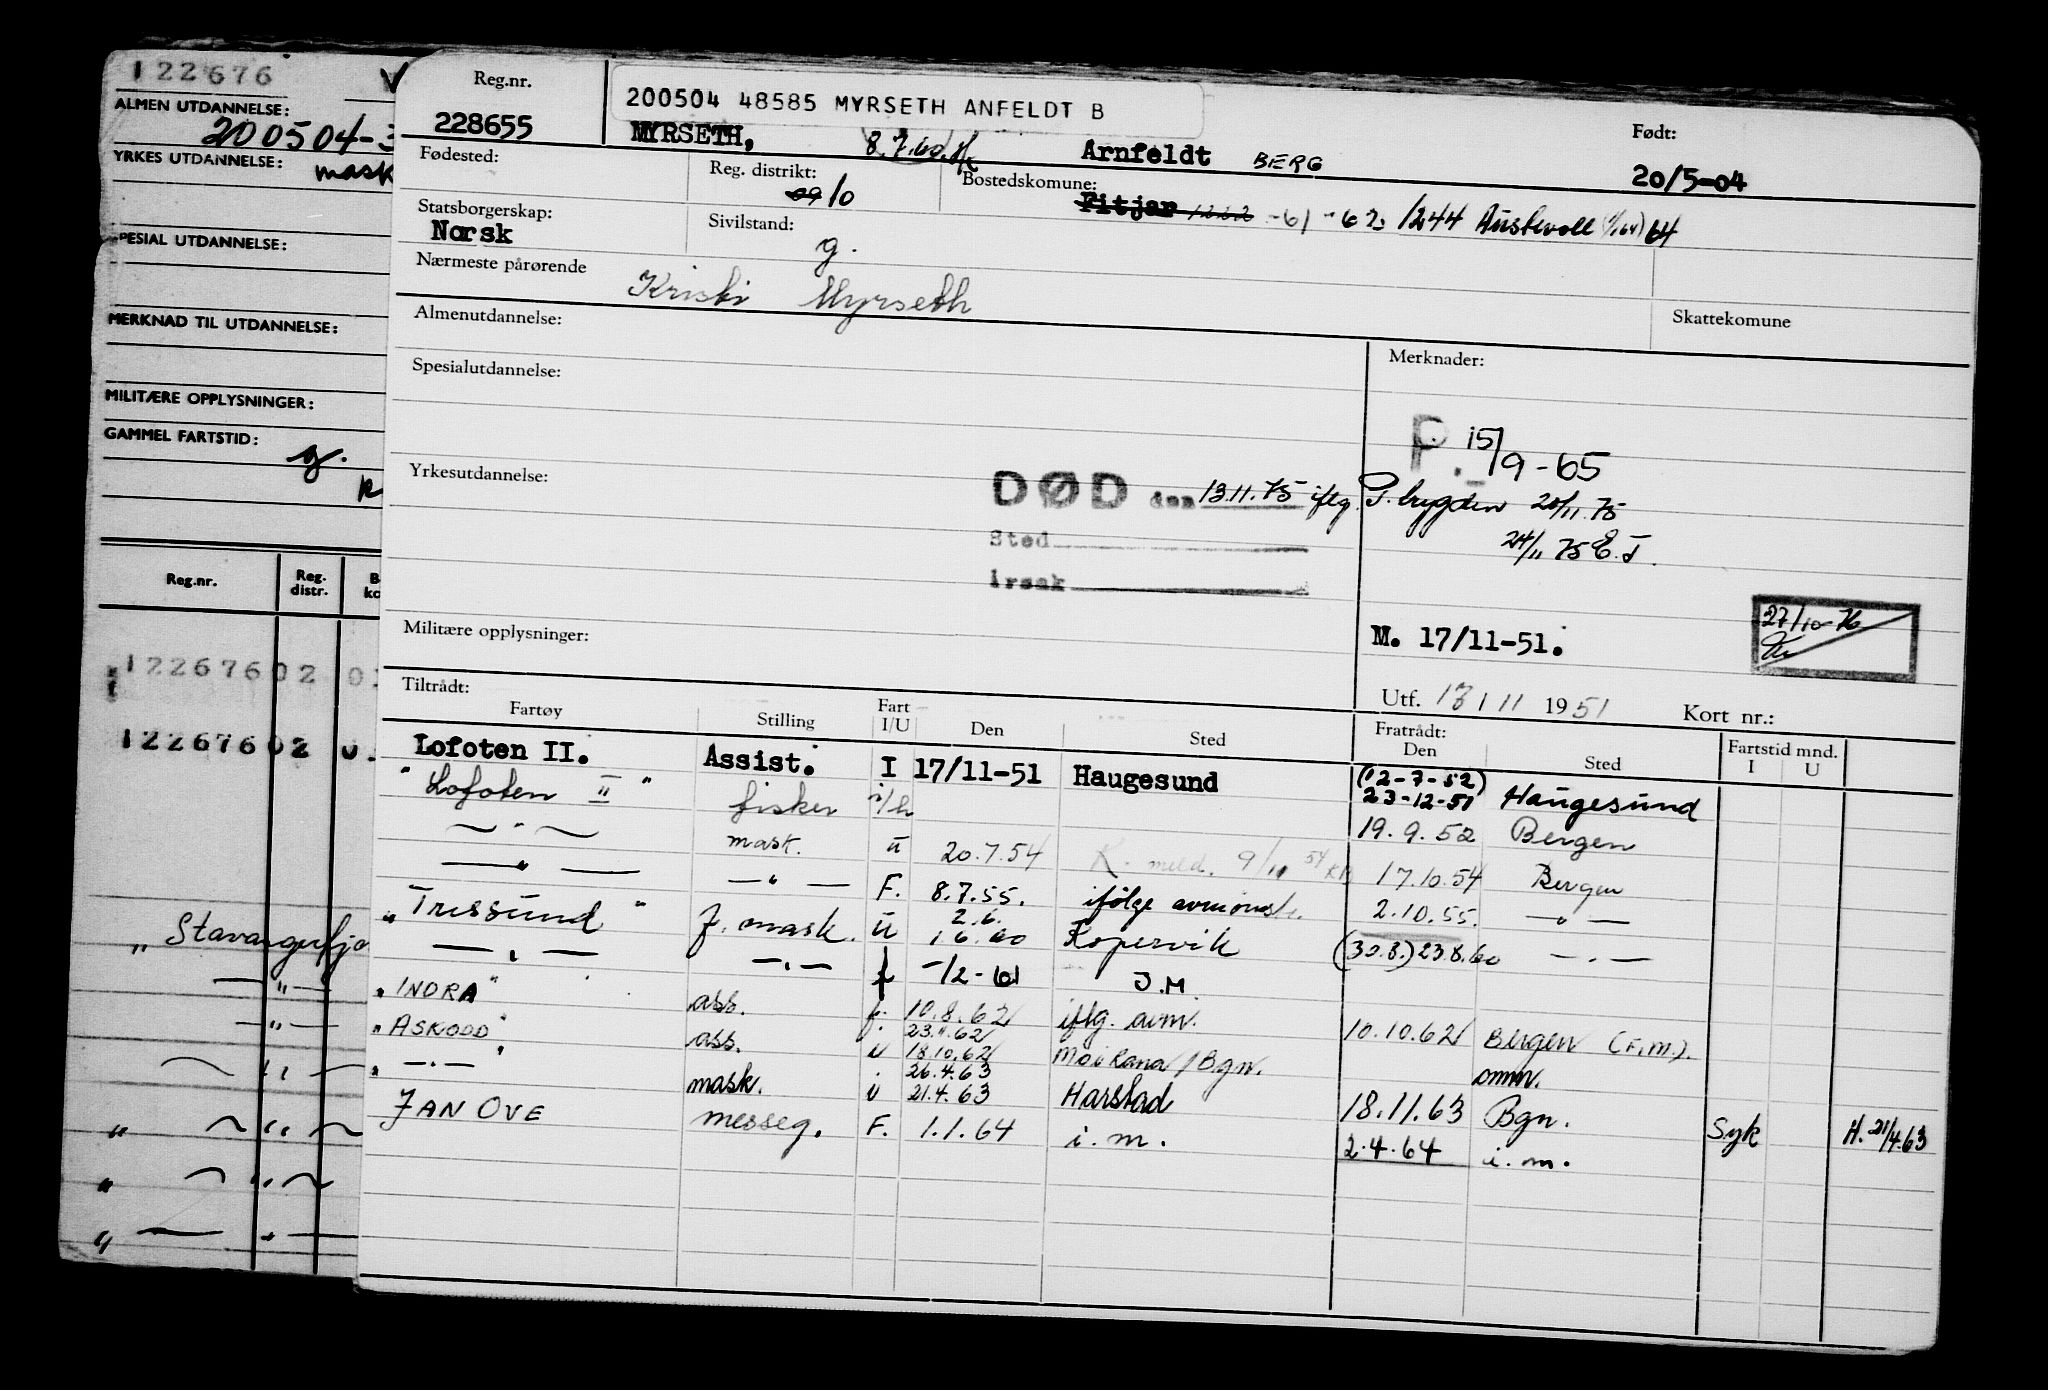 122676
ALMEN UTDANNELSE:
200504-3
YRKES UTDANNELSE: mask
SPESIAL UTDANNELSE:
MERKNAD TIL UTDANNELSE:
MILITÆRE OPPLYSNINGER:
GAMMEL FARTSTID:
g.
Reg.nr. Reg. distr. B ko
12267602 0
12267602 0
" Stavangerfjo
Reg.nr. 228655
200504 48585 MYRSETH ANFELDT B
MYRSETH, 8.7.60 Arnfeldt BERG
Født: 20/5-04
Fødested: Reg. distrikt: 09 10 Bostedskomune: Fitjar 1222 -61 -63 1244 Austevoll (1/1 64) 64
Statsborgerskap: Norsk Sivilstand: g.
Nærmeste pårørende Kristi Myrseth
Almenutdannelse: Skattekomune
Spesialutdannelse: Merknader:
P. 15/9-65
Yrkesutdannelse: DØD den 13.11.75 iflg. P. brygden 20/11.75
24/11 75 E.J.
Sted
Årsak
Militære opplysninger: M. 17/11-51. 27/10-76
Utf. 17/11 1951 Kort nr.:
Tiltrådt: Fratrådt: Fartstid mnd.
Fartøy Stilling Fart I/U Den Sted Den Sted I U
Lofoten II. Assist. I 17/11-51 Haugesund (12-7-52) 23-12-51 Haugesund
"Lofoten II" fisker i/h 19.9.52 Bergen
— " — mask. u 20.7.54 K. meld. 9/11 54 17.10.54 Bergen
— " — — " — F. 8.7.55. ifølge avmønstr. 2.10.55. — " —
"Trissund" f. mask. u 2.6. 1.6.60 Kopervik (30.8.) 23.8.60 — " —
— " — — " — f -/2-61 J.M.
"INDRA" ass. f. 10.8.62 iflg. avm. 10.10.62 Bergen (F.M.).
"ASKODD" ass. 23.11.62 18.10.62 Mo i Rana / Bgn. omm.
" — " — " mask. u 26.4.63 21.4.63 Harstad 18.11.63 Bgn. Syk H. 21/4.63
JAN OVE messeg. F. 1.1.64 i.m. 2.4.64 i.m.